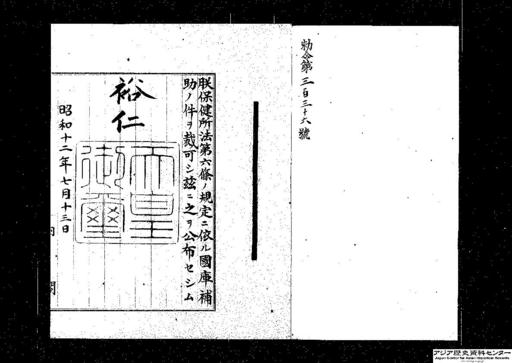 勅令第三百三十六號
朕保健所法第六條ノ規定ニ依ル國庫補
助ノ件ヲ裁可シ茲ニ之ヲ公布セシム
裕仁
天皇御璽
昭和十二年七月十三日
内閣
アジア歴史資料センター
Japan Center for Asian Historical Records